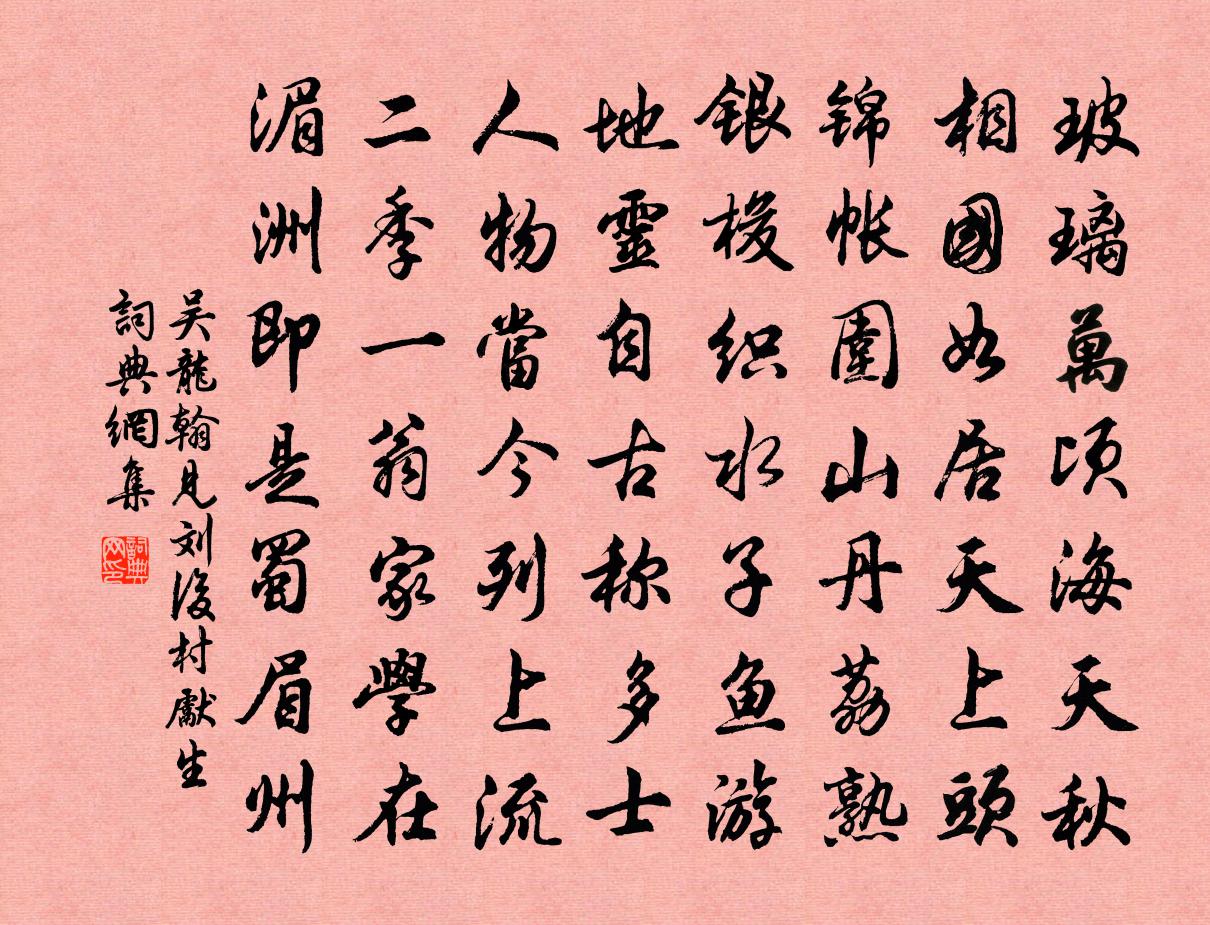 玻璃萬頃海天秋
相國如居天上頭
锦帐圍山丹荔熟
銀梭织水子鱼游
地靈自古称多士
人物當今列上流
二季一翁家學在
湄洲即是蜀眉州
吴龍翰見刘後村獻生
詞典網集
詞典
网印